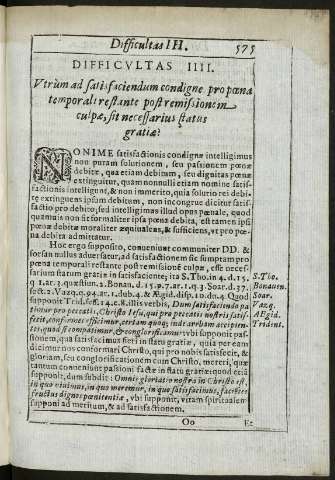 Difficultas IIII.
575
DIFFICVLTAS IIII.
Vtrùm ad satisfaciendum condignè pro pœna
temporali restante post remissionem
culpæ, sit necessarius status
gratiæ?
NOMINE satisfactionis condignæ intelligimus
non puram solutionem, seu passionem pœnæ
debitæ, qua etiam debitum, seu dignitas pœnæ
extinguitur, quam nonnulli etiam nomine satis-
factionis intelligunt, & non immeritò, quia solutio rei debi-
tæ extinguens ipsum debitum, non incongruè dicitur satis-
factio pro debito; sed intelligimus illud opus pœnale, quod
quamuis non sit formaliter ipsa pœna debita, est tamen ipsi
pœnæ debitæ moraliter æquiualens, & sufficiens, vt pro pœ-
na debita admittatur.
Hoc ergo supposito, conueniunt communiter DD. &
forsan nullus aduersatur, ad satisfactionem sic sumptam pro
pœna temporali restante post remissionē culpæ, esse neces-
sarium statum gratiæ in satisfaciente; ita S. Tho. in 4. d. 15.
q. 1. ar. 3. quæstiun. 2. Bonau. d. 15. p. 2. ar. 1. q. 3. Soar. d. 37.
sect. 2. Vazq. q. 94. ar. 1. dub. 4. & Ægid. disp. 10. du. 4. Quod
supponit Trid. sess. 14. c. 8. illis verbis, Dum satisfaciendo pa
timur pro peccatis, Christo Iesu, qui pro peccatis nostris satis-
fecit, conformes efficimur, certam quoq; inde arrham accipien-
tes, quod si compatimur, & conglorificamur: vbi supponit pas-
sionem, qua satisfacimus fieri in statu gratiæ, quia per eam
dicimur nos conformari Christo, qui pro nobis satisfecit, &
gloriam, seu conglorificationem cum Christo, mereri, quæ
tantum conueniunt passioni factæ in statu gratiæ: quod etiā
supponit, dum subdit: Omnis gloriatio nostra in Christo est,
in quo viuimus, in quo meremur, in quo satisfacimus, facientes
fructus dignos pœnitentiæ, vbi supponit, vitam spiritualem
supponi ad meritum, & ad satisfactionem.
S. Tho.
Bonauen.
Soar.
Vazq.
Ægid.
Trident.
Oo
Et